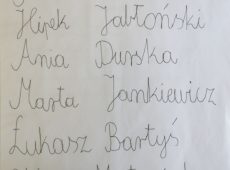 Hipek Jabłoński
Ania Durska
Marta Jankiewicz
Łukasz Bartyś